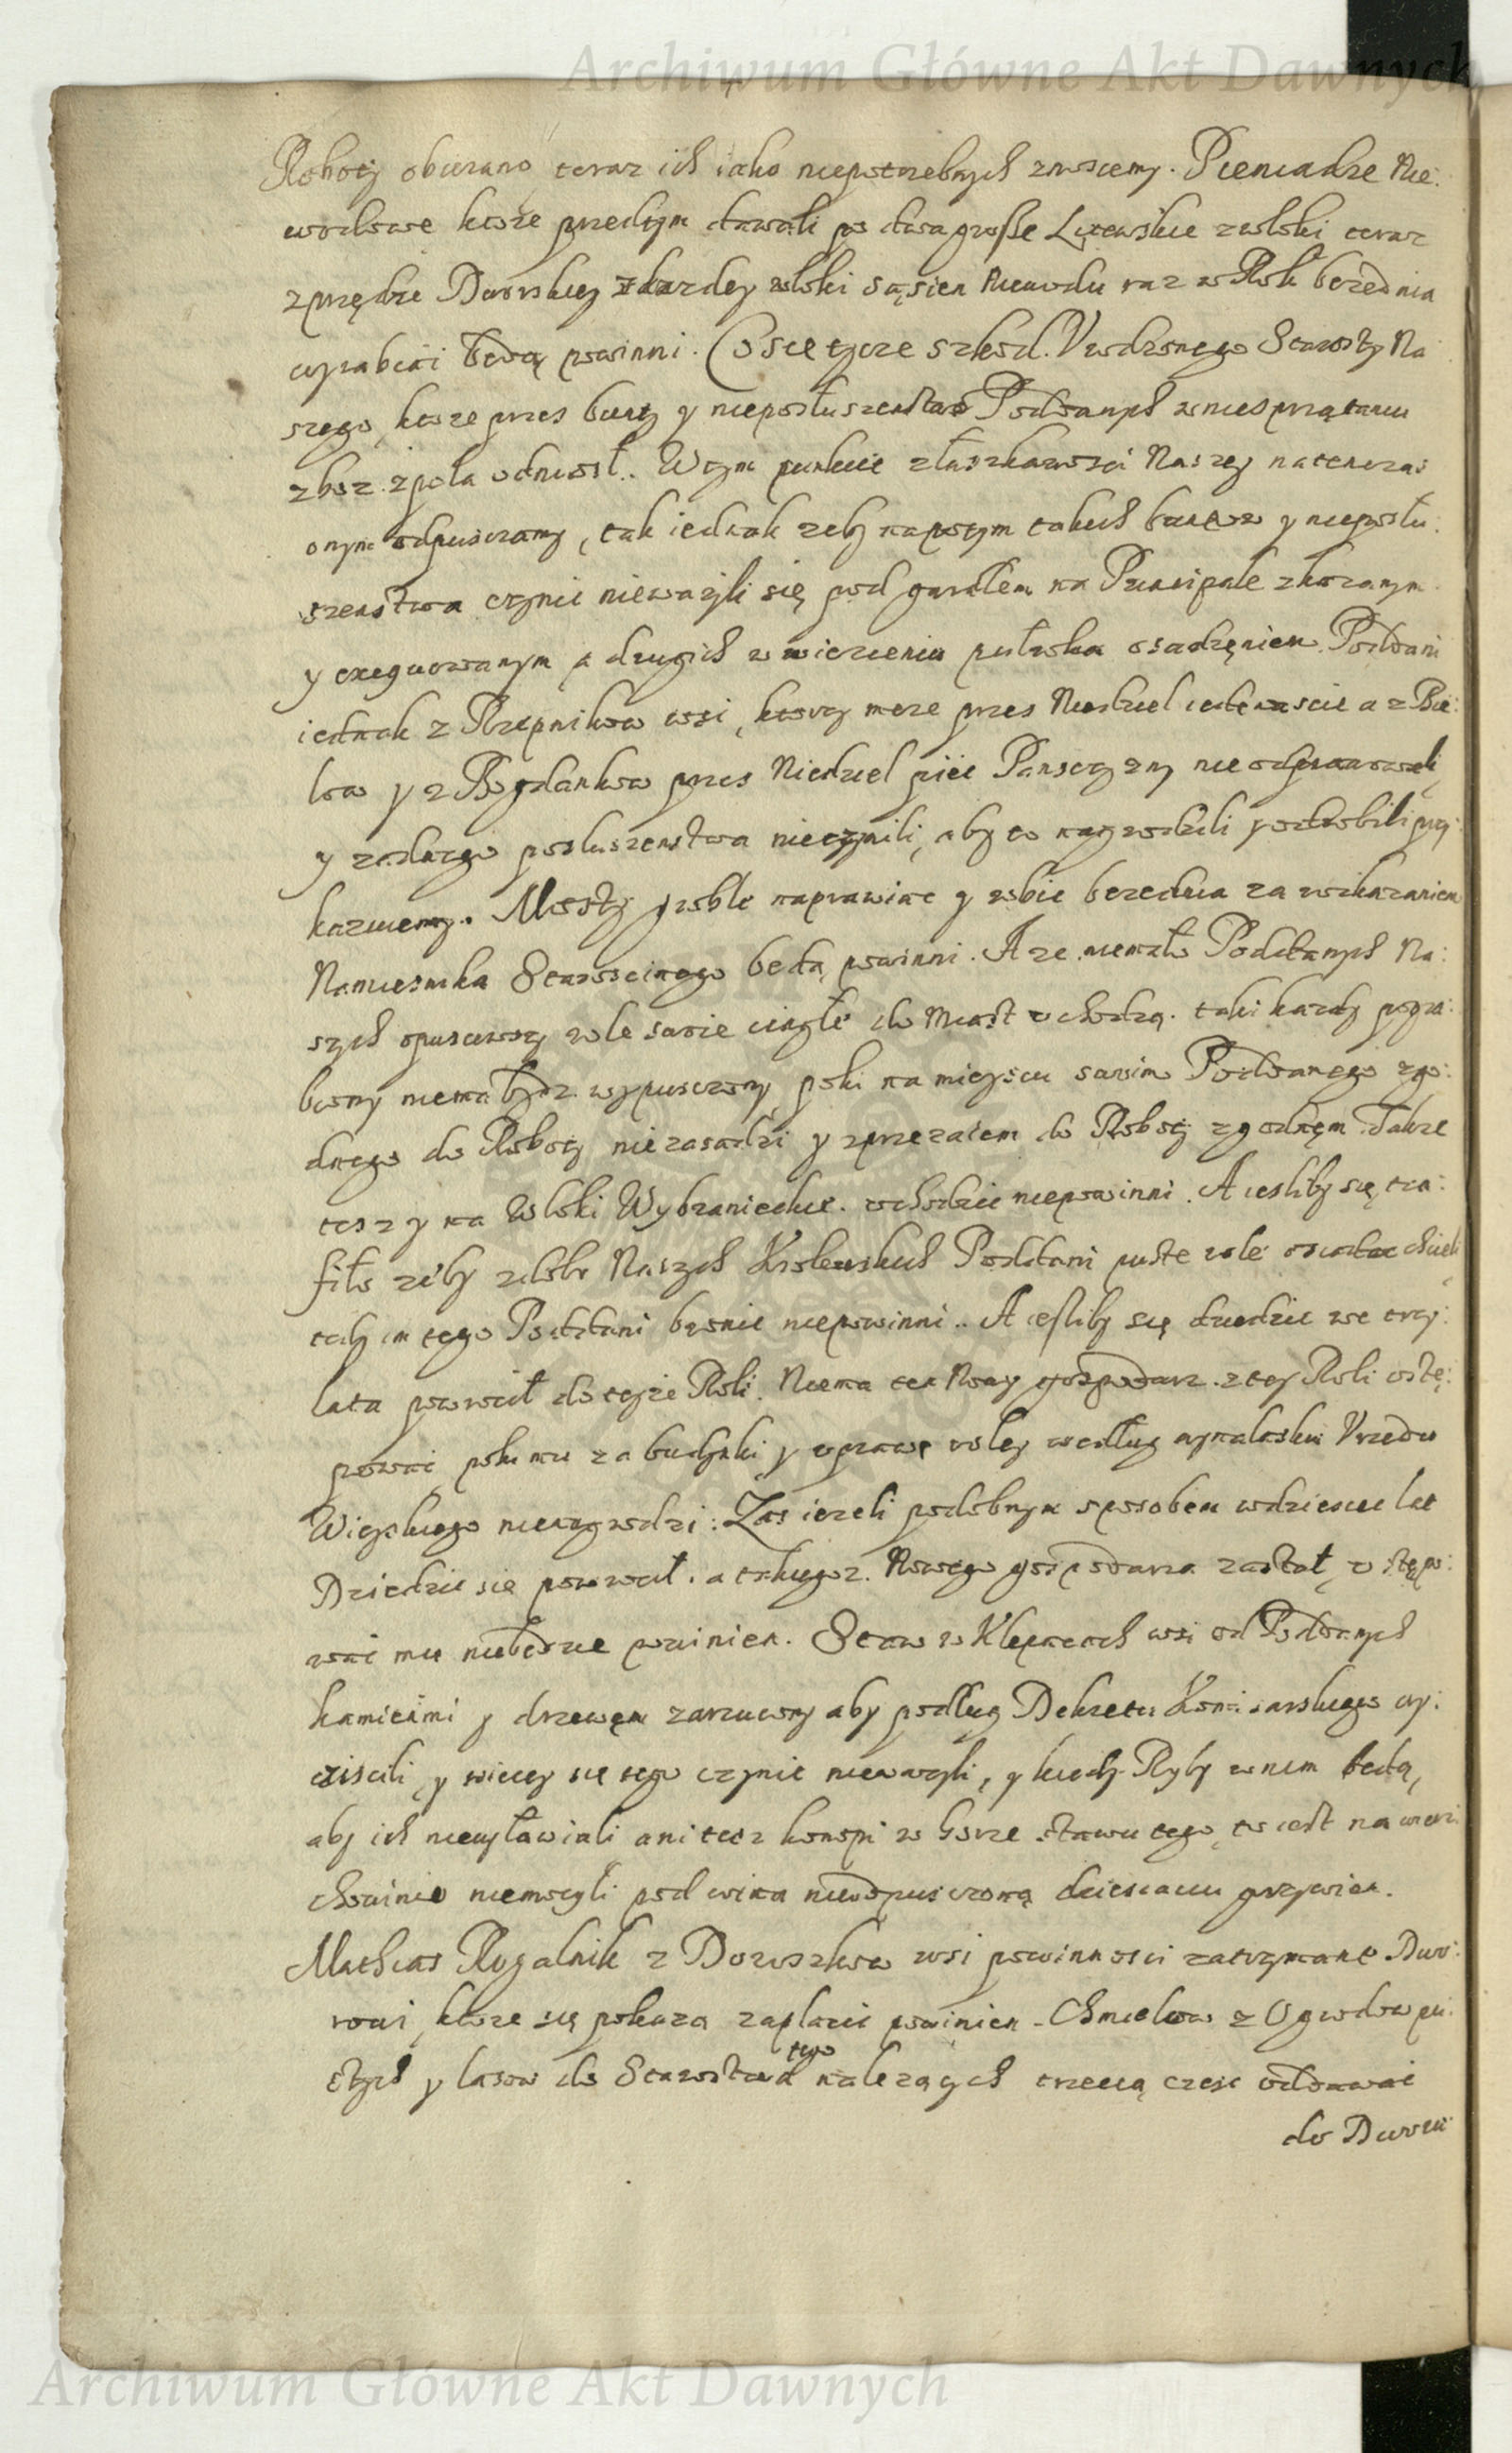 Archiwum Główne Akt Dawnych
Roboty obierano teraz ich iako niepotrzebnych znosiemy. Pieniadze Nie:
wodowe ktore przedtym dawali po dwa grosze Litewskie z wloki teraz
z przędze Dworskiey z kazdey wloki sązien Niewodu raz w Rok bezednia
wyrabiać będą powinni. Co się tycze szkod Urodzonego Starosty Na
szego, ktore przez bunty y nieposłuszenstwo Poddanych w niesprzątaniu
zboz z pola odniosł. W tym punkcie z łaskawosci Naszey na ten czas
onym odpuszczamy, tak iednak zeby napotym takich buntow y nieposłu:
szenstwa czynic nieważyli się pod gardłem na Principale skazanym
y exequowanym a drugich w wiezieniu połroka osadzęniem. Poddani
iednak z Rzepnikow wsi, ktorzy przez Niedziel iedenascie a z Bie:
low y z Bogdankow przez Niedziel pięc Panszczyzny nie odprawowali
y zadnego posłuszenstwa nieczynili, aby to nagrodzili y odrobili przy:
kazuiemy. Mosty y groble naprawiac y robic bezednia za roskazaniem
Namiesnika Starosciнego będą powinni. A ze niemało Poddanych Na:
szych opusciwszy role swoie ciągłe do Miast uchodzą. taki kazdy
niema bydz wypuszczony, poki na mieyscu swoim Poddanego zgo:
dnego do Roboty niezasadzi y zprzezaiem do Roboty zgodnęm. Takze
tesz y na Wloki Wybranieckie. wchodzic niepowinni. A iesliby się tra:
fiło zeby z dobr Naszych Krolewskich Poddani puste role osiadac chcieli
tedy im tego Poddani bronic niepowinni. A iesliby się dziedzic we trzy:
lata powrocił do teyże Roli. Niema ten Nowy gospodarz z tey Roli ustę:
powac, poki mu za budynki y uprawe roley według wynalasku Urzedu
Wieyskiego nienagrodzi: Zas iezeli podobnym sposobem w dziesiec let
Dziedzic sie powrocił. a takiegoz. Nowego gospodarza zastał, ustępo:
wac mu niebędzie powinien. Staw w Klepaczach wsi od Poddanych
kamieńmi y drzewęm zarzucony aby podług Dekretu Komisarskiego wy:
cziscili, y wiecey się tego czynic nieważyli, y kiedy Ryby w nim będą,
aby ich niewyławiali ani tesz konopi w Gorze stawu tego, to iest na wierz
chowinie niemoczyli pod wina nieodpuszczoną dziesiaciu grzywien.
Mathias Rogalnik z Doroszkow wsi powinnosci zatrzymane Dwo:
rowi, ktore się pokaza zapłacic powinien. Chmielow z Ogrodow pu:
stych y lasow do Starostwa tego nalezących trzecią czesc oddawac
do Dworu
Archiwum Główne Akt Dawnych